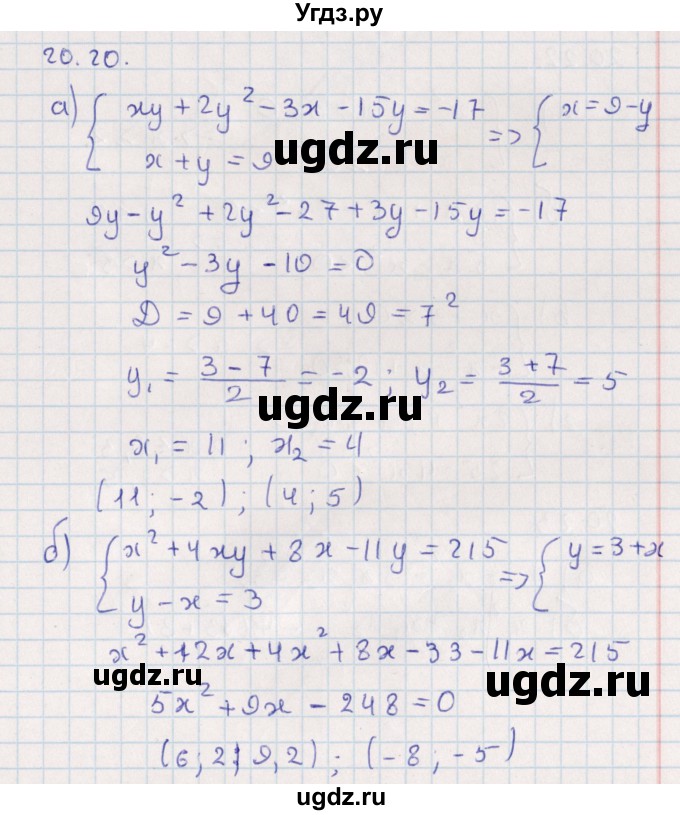 Угдз.ру
20.20.
а) { xy + 2y² - 3x - 15y = -17
x + y = 9 => { x = 9 - y
ugdz.ru
9y - y² + 2y² - 27 + 3y - 15y = -17
y² - 3y - 10 = 0
D = 9 + 40 = 49 = 7²
y₁ = (3 - 7)/2 = -2 ; y₂ = (3 + 7)/2 = 5
ugdz.ru
x₁ = 11 ; x₂ = 4
(11 ; -2) ; (4 ; 5)
б) { x² + 4xy + 8x - 11y = 215
y - x = 3 => { y = 3 + x
x² + 12x + 4x² + 8x - 33 - 11x = 215
ugdz.ru ugdz.ru
5x² + 9x - 248 = 0
(6,2 ; 9,2) ; (-8 ; -5)
ugdz.ru